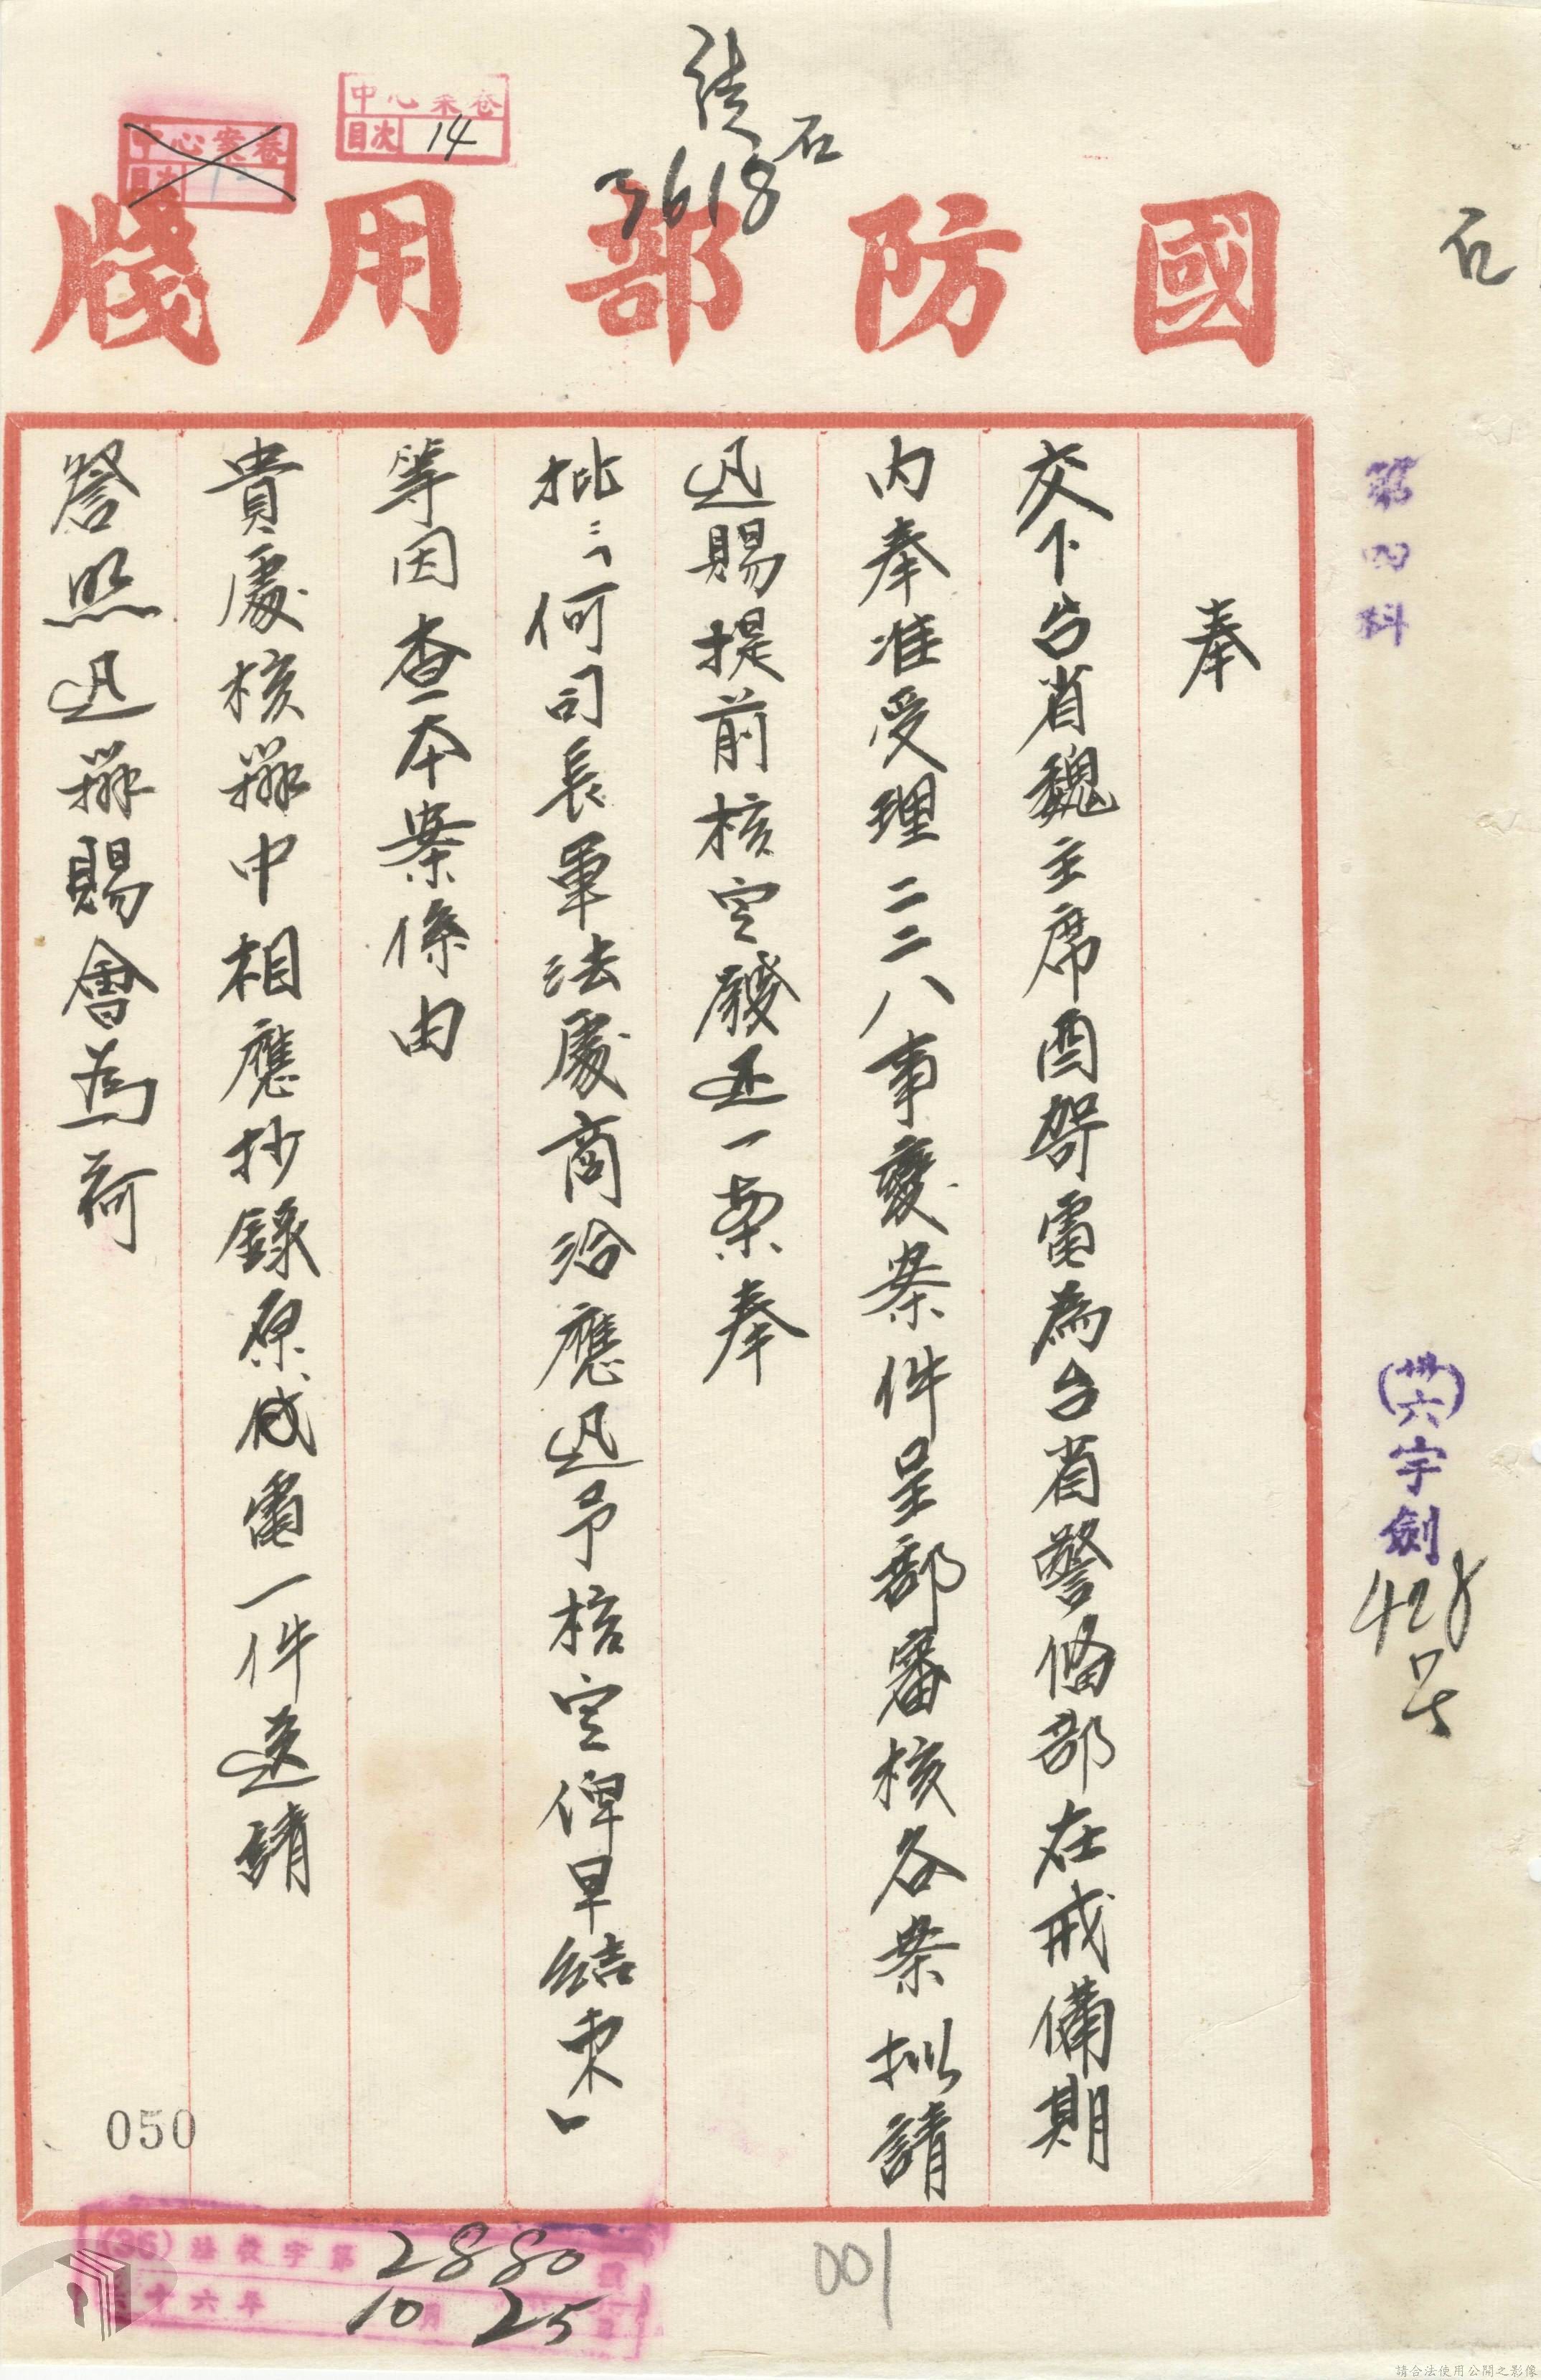 石
第四科
(卅六)宇劍428号
石
3618
中心案卷
目次 14
中心案卷
目次
國防部用牋
奉
交下台省魏主席酉哿電為台省警備部在戒備期
內奉准受理二二八事變案件呈部審核各案拟請
迅賜提前核定發还一案奉
批:「何司長軍法處商洽應迅予核定俾早結束」
等因查本案係由
貴處核辦中相應抄錄原代電一件送請
詧照迅辦賜會為荷
050
(36)法發字第2880號
三十六年10月25日
001
請合法使用公開之影像